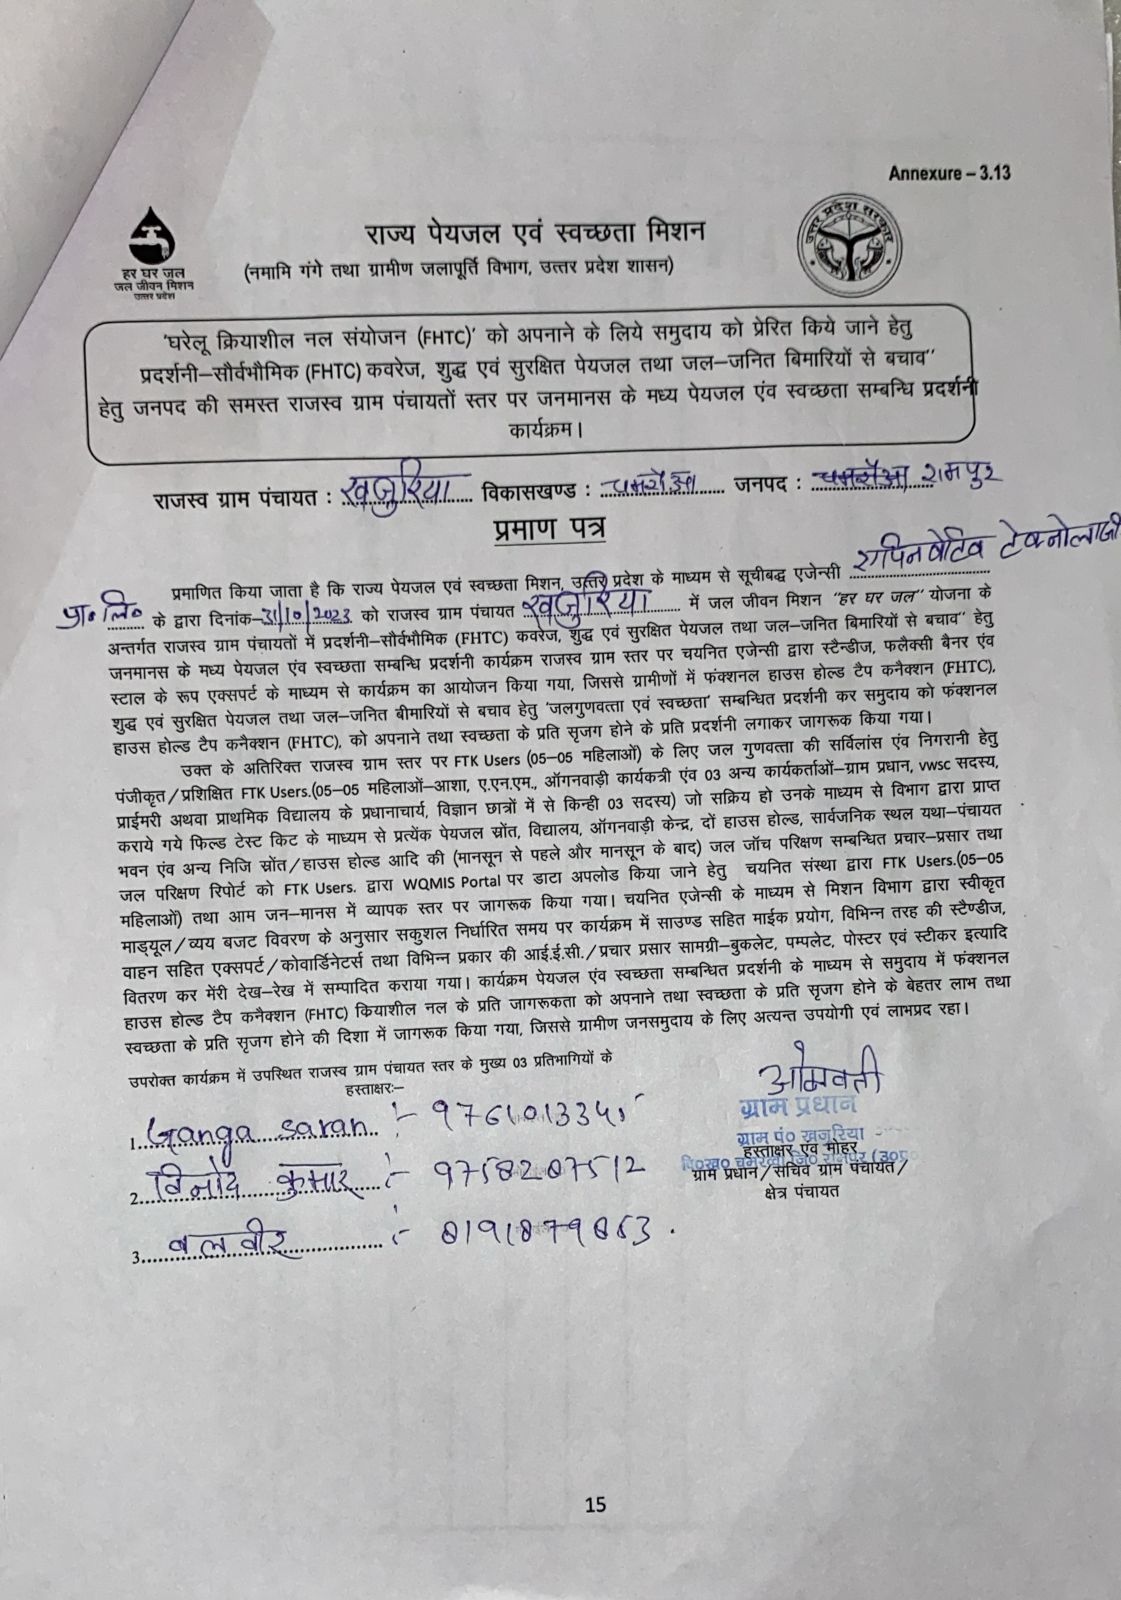 Annexure – 3.13
राज्य पेयजल एवं स्वच्छता मिशन
(नमामि गंगे तथा ग्रामीण जलापूर्ति विभाग, उत्तर प्रदेश शासन)
हर घर जल
जल जीवन मिशन
उत्तर प्रदेश
उत्तर प्रदेश सरकार
'घरेलू क्रियाशील नल संयोजन (FHTC)' को अपनाने के लिये समुदाय को प्रेरित किये जाने हेतु
प्रदर्शनी–सौर्वभौमिक (FHTC) कवरेज, शुद्ध एवं सुरक्षित पेयजल तथा जल–जनित बिमारियों से बचाव''
हेतु जनपद की समस्त राजस्व ग्राम पंचायतों स्तर पर जनमानस के मध्य पेयजल एंव स्वच्छता सम्बन्धि प्रदर्शनी
कार्यक्रम।
राजस्व ग्राम पंचायत : खजुरिया विकासखण्ड : चमरौआ जनपद : चमरौआ रामपुर
प्रमाण पत्र
प्रमाणित किया जाता है कि राज्य पेयजल एवं स्वच्छता मिशन, उत्तर प्रदेश के माध्यम से सूचीबद्ध एजेन्सी एपिनवेटिव टेक्नोलाजी
प्रा॰ लि॰ के द्वारा दिनांक–31/10/2023 को राजस्व ग्राम पंचायत खजुरिया में जल जीवन मिशन "हर घर जल" योजना के
अन्तर्गत राजस्व ग्राम पंचायतों में प्रदर्शनी–सौर्वभौमिक (FHTC) कवरेज, शुद्ध एवं सुरक्षित पेयजल तथा जल–जनित बिमारियों से बचाव'' हेतु
जनमानस के मध्य पेयजल एंव स्वच्छता सम्बन्धि प्रदर्शनी कार्यक्रम राजस्व ग्राम स्तर पर चयनित एजेन्सी द्वारा स्टैन्डीज, फलैक्सी बैनर एंव
स्टाल के रूप एक्सपर्ट के माध्यम से कार्यक्रम का आयोजन किया गया, जिससे ग्रामीणों में फंक्शनल हाउस होल्ड टैप कनैक्शन (FHTC),
शुद्ध एवं सुरक्षित पेयजल तथा जल–जनित बीमारियों से बचाव हेतु 'जलगुणवत्ता एवं स्वच्छता' सम्बन्धित प्रदर्शनी कर समुदाय को फंक्शनल
हाउस होल्ड टैप कनैक्शन (FHTC), को अपनाने तथा स्वच्छता के प्रति सृजग होने के प्रति प्रदर्शनी लगाकर जागरूक किया गया।
उक्त के अतिरिक्त राजस्व ग्राम स्तर पर FTK Users (05–05 महिलाओं) के लिए जल गुणवत्ता की सर्विलांस एंव निगरानी हेतु
पंजीकृत/प्रशिक्षित FTK Users.(05–05 महिलाओं–आशा, ए.एन.एम., ऑगनवाड़ी कार्यकत्री एंव 03 अन्य कार्यकर्ताओं–ग्राम प्रधान, vwsc सदस्य,
प्राईमरी अथवा प्राथमिक विद्यालय के प्रधानाचार्य, विज्ञान छात्रों में से किन्ही 03 सदस्य) जो सक्रिय हो उनके माध्यम से विभाग द्वारा प्राप्त
कराये गये फिल्ड टेस्ट किट के माध्यम से प्रत्येंक पेयजल स्रोंत, विद्यालय, ऑगनवाड़ी केन्द्र, दों हाउस होल्ड, सार्वजनिक स्थल यथा–पंचायत
भवन एंव अन्य निजि स्रोंत/हाउस होल्ड आदि की (मानसून से पहले और मानसून के बाद) जल जॉच परिक्षण सम्बन्धित प्रचार–प्रसार तथा
जल परिक्षण रिपोर्ट को FTK Users. द्वारा WQMIS Portal पर डाटा अपलोड किया जाने हेतु चयनित संस्था द्वारा FTK Users.(05–05
महिलाओं) तथा आम जन–मानस में व्यापक स्तर पर जागरूक किया गया। चयनित एजेन्सी के माध्यम से मिशन विभाग द्वारा स्वीकृत
माड्यूल/व्यय बजट विवरण के अनुसार सकुशल निर्धारित समय पर कार्यक्रम में साउण्ड सहित माईक प्रयोग, विभिन्न तरह की स्टैण्डीज,
वाहन सहित एक्सपर्ट/कोवार्डिनेटर्स तथा विभिन्न प्रकार की आई.ई.सी./प्रचार प्रसार सामग्री–बुकलेट, पम्पलेट, पोस्टर एवं स्टीकर इत्यादि
वितरण कर मेंरी देख–रेख में सम्पादित कराया गया। कार्यक्रम पेयजल एंव स्वच्छता सम्बन्धित प्रदर्शनी के माध्यम से समुदाय में फंक्शनल
हाउस होल्ड टैप कनैक्शन (FHTC) कियाशील नल के प्रति जागरूकता को अपनाने तथा स्वच्छता के प्रति सृजग होने के बेहतर लाभ तथा
स्वच्छता के प्रति सृजग होने की दिशा में जागरूक किया गया, जिससे ग्रामीण जनसमुदाय के लिए अत्यन्त उपयोगी एवं लाभप्रद रहा।
उपरोक्त कार्यक्रम में उपस्थित राजस्व ग्राम पंचायत स्तर के मुख्य 03 प्रतिभागियों के
हस्ताक्षरः–
ओमवती
ग्राम प्रधान
ग्राम पं० खजुरिया
हस्ताक्षर एंव मोहर
ग्राम प्रधान/सचिव ग्राम पंचायत/
क्षेत्र पंचायत
1. Ganga saran :- 9761013345
2. विनोद कुमार :- 9758287512
3. बलवीर :- 8191879863.
15